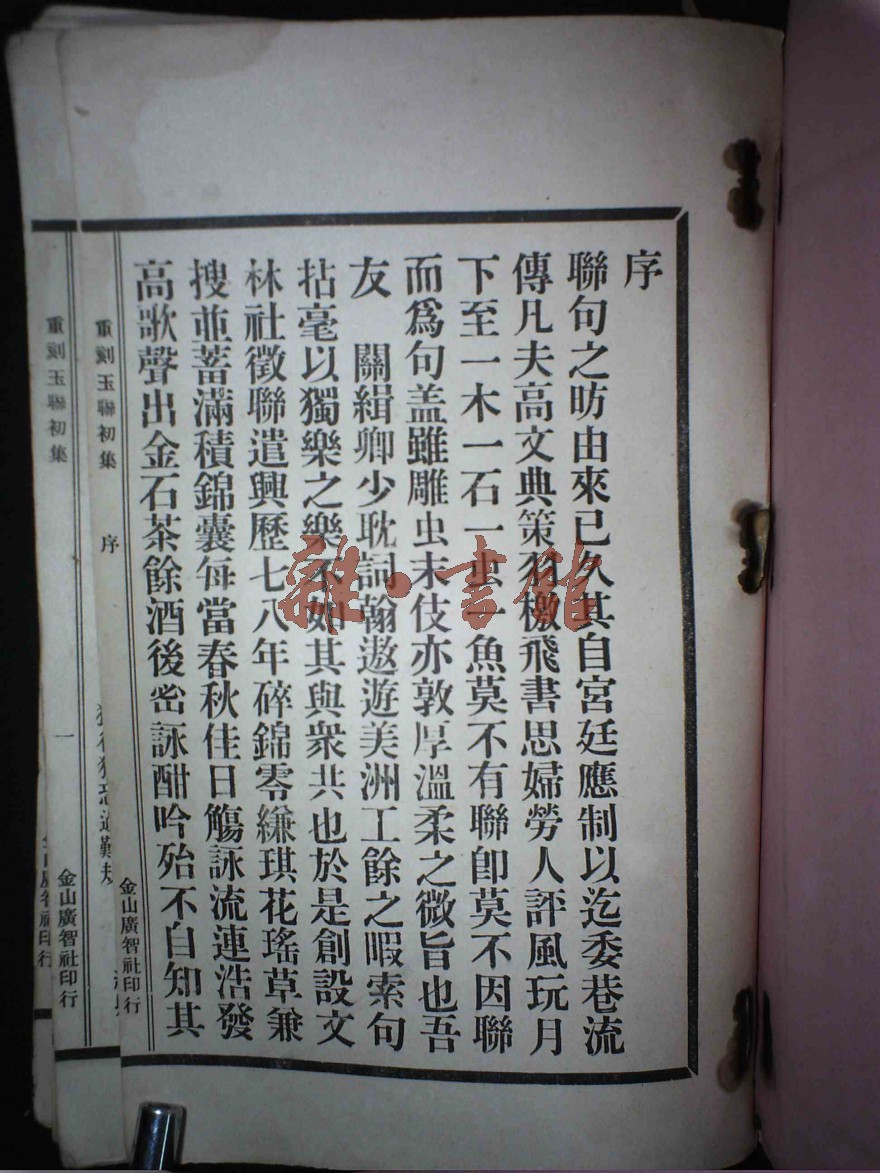 序
聯句之昉由來已久其自宮廷應制以迄委巷流
傳凡夫高文典策羽檄飛書思婦勞人評風玩月
下至一木一石一虫一魚莫不有聯卽莫不因聯
而爲句盖雖雕虫末伎亦敦厚溫柔之微旨也吾
友　關緝卿少耽詞翰遨遊美洲工餘之暇索句
拈毫以獨樂之樂不如其與衆共也於是創設文
林社徵聯遣興歷七八年碎錦零縑琪花瑤草兼
搜並蓄滿積錦囊每當春秋佳日觴詠流連浩發
高歌聲出金石茶餘酒後密詠酣吟殆不自知其
金山廣智社印行
重刻玉聯初集 序
一
金山廣智社印行
重刻玉聯初集
金山廣智社印行
雜·書館